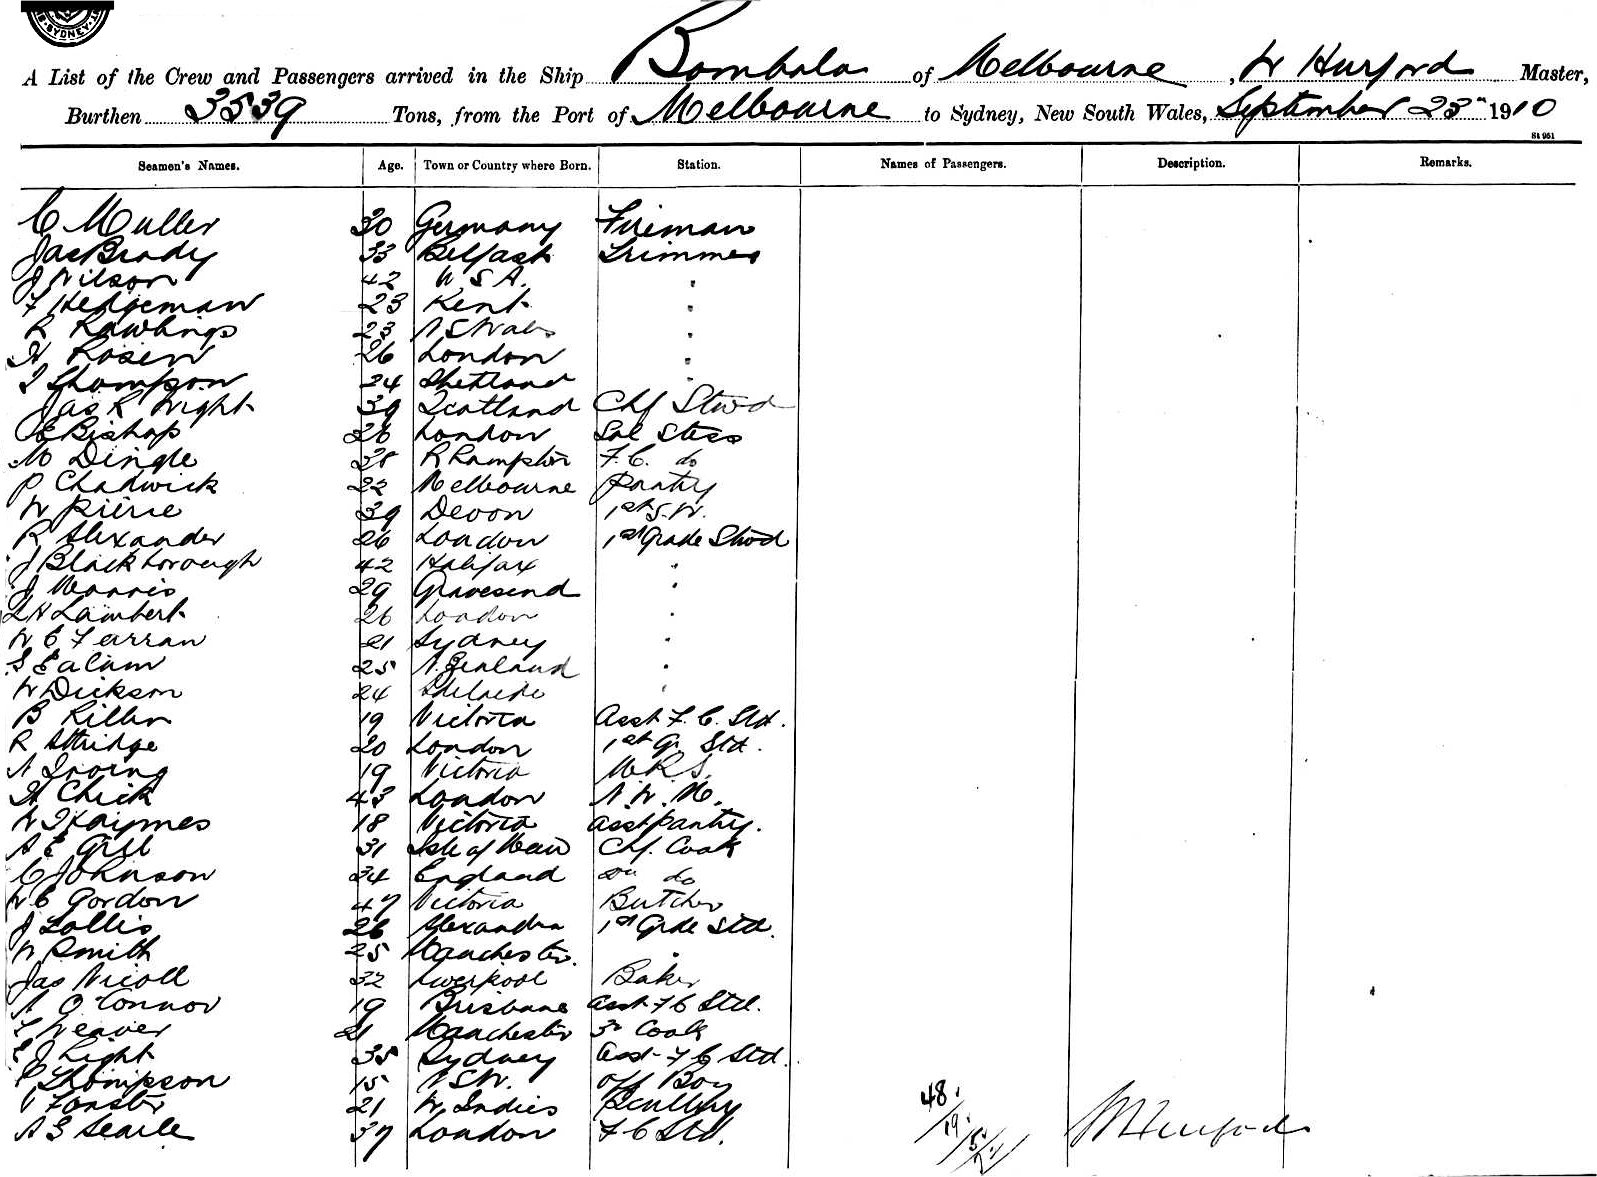 SYDNEY
A List of the Crew and Passengers arrived in the Ship Bombala of Melbourne, W Hurford Master,
Burthen 3539 Tons, from the Port of Melbourne to Sydney, New South Wales, September 23 1910
St 951
Seamen's Names. Age. Town or Country where Born. Station. Names of Passengers. Description. Remarks.
C Muller 30 Germany Fireman
Jas Brady 33 Belfast Trimmer
J Wilson 42 U.S.A. "
F Hedgeman 23 Kent "
R Rawlings 23 N S Wales "
H Rosen 26 London "
T Thompson 24 Shetland "
Jas R Wight 39 Scotland Chf Stwd
E Bishop 26 London Sal Stess
M Dingle 38 F.C. do
P Chadwick 22 Melbourne Pantry
W Pierie 39 Devon 1st S.W.
R Alexander 26 London 1st Grade Stwd
J Blackborough 42 Halifax "
J Morris 29 Gravesend "
Lambert 26 London "
W C Farran 21 Sydney "
S Ealam 25 N. Zealand "
W Dickson 24 Adelaide "
B Killen 19 Victoria Asst F.C. Std.
R Attridge 20 London 1st Gr. Std.
N Irving 19 Victoria M.R.S.
H Chick 43 London N.W.M.
W J Haymes 18 Victoria Asst Pantry.
A E Gill 31 Isle of Man Chf. Cook
C Johnson 34 England do
W C Gordon 47 Victoria Butcher
J Lollis 26 Alexandra 1st Grde Std.
W Smith 25 Manchester. "
Jas Nicoll 32 Liverpool Baker
A O'Connor 19 Brisbane Asst F C Std.
T Weaver 21 Manchester 3rd Cook
E J Light 35 Sydney Asst F C Std.
C Thompson 15 N.S.W. Off Boy
V Forster 21 W. Indies Scullery 48.
A G Searle 37 London F C Std. 19. W Hurford